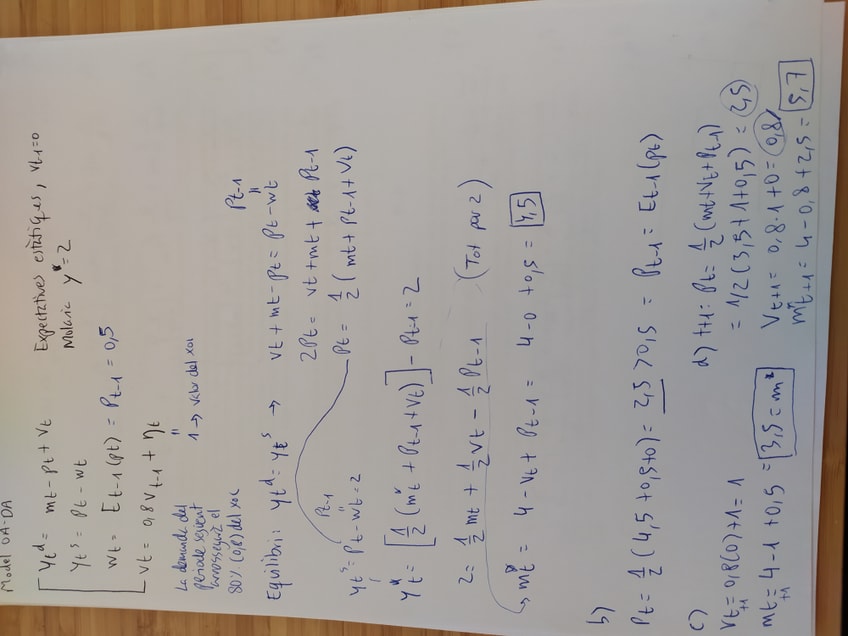 Model OA-DA
Yt^d = mt - pt + vt
Yt^s = pt - wt
wt = Et-1(pt) = Pt-1 = 0,5
vt = 0,8 vt-1 + ηt
Expectatives estàtiques, vt-1=0
y* = 2
"
1 → valor del xoc
La demanda del
període següent
el
80% (0,8) del xoc
Equilibri: yt^d = yt^s → vt + mt - pt = pt - wt
"
Pt-1
2Pt = vt + mt + Pt-1
Pt = 1/2 (mt + Pt-1 + vt)
yt^s = Pt - wt = 2
"
Pt-1
yt* = [1/2 (mt* + Pt-1 + vt)] - Pt-1 = 2
2 = 1/2 mt + 1/2 vt - 1/2 Pt-1 (Tot per 2)
mt* = 4 - vt + Pt-1 = 4 - 0 + 0,5 = 4,5
b)
Pt = 1/2 (4,5 + 0,5 + 0) = 2,5 > 0,5 = Pt-1 = Et-1(pt)
c)
vt+1 = 0,8(0) + 1 = 1
mt+1 = 4 - 1 + 0,5 = 3,5 = m*
d) t+1: Pt = 1/2 (mt + vt + Pt-1)
= 1/2 (3,5 + 1 + 0,5) = 2,5
Vt+1 = 0,8·1 + 0 = 0,8
m*t+1 = 4 - 0,8 + 2,5 = 5,7